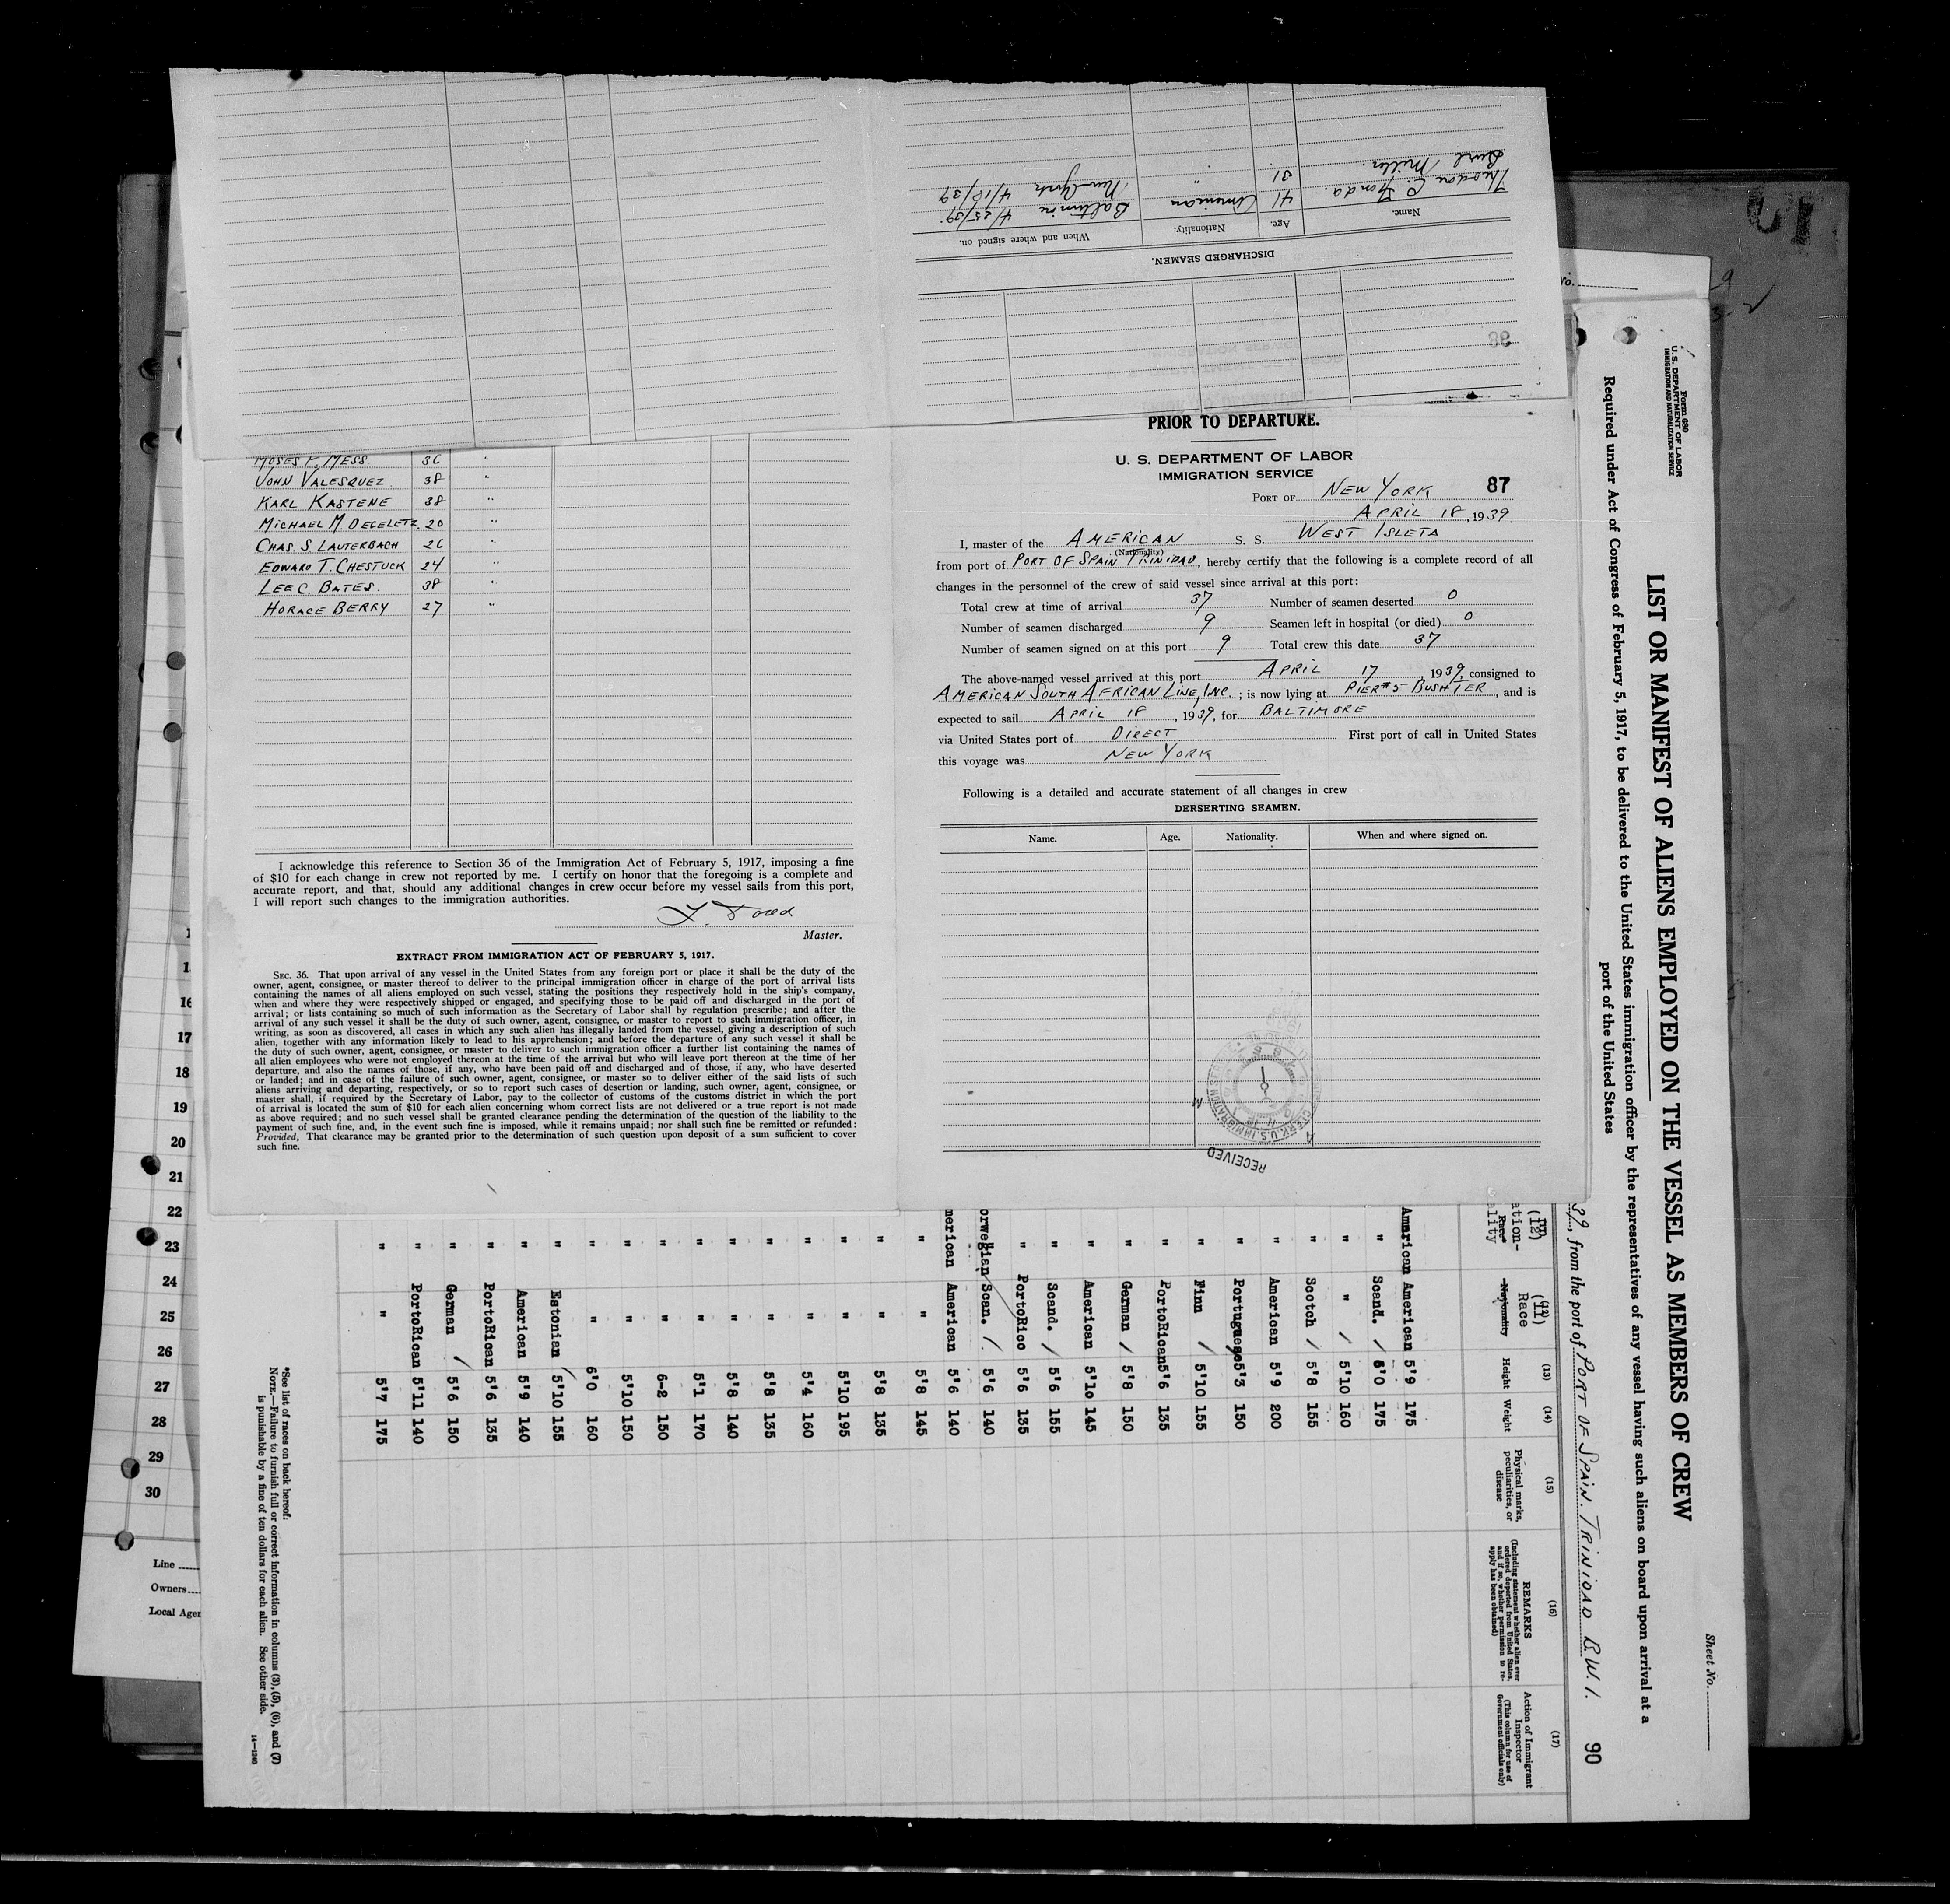 DISCHARGED SEAMEN.
Name.
Age.
Nationality.
When and where signed on.
Theodore C. Fonda. 41 American Baltimore 4/25/39.
Burl Miller. 31 " New York 4/18/39
88
MOSES P. MESS 36 "
JOHN VALESQUEZ 38 "
KARL KASTENE 38 "
MICHAEL M. DEGELETZ. 20 "
CHAS. S LAUTERBACH 26 "
EDWARD T. CHESTUCK 24 "
LEE C. BATES. 38 "
HORACE BERRY 27 "
I acknowledge this reference to Section 36 of the Immigration Act of February 5, 1917, imposing a fine
of $10 for each change in crew not reported by me. I certify on honor that the foregoing is a complete and
accurate report, and that, should any additional changes in crew occur before my vessel sails from this port,
I will report such changes to the immigration authorities.
Master.
EXTRACT FROM IMMIGRATION ACT OF FEBRUARY 5, 1917.
SEC. 36. That upon arrival of any vessel in the United States from any foreign port or place it shall be the duty of the
owner, agent, consignee, or master thereof to deliver to the principal immigration officer in charge of the port of arrival lists
containing the names of all aliens employed on such vessel, stating the positions they respectively hold in the ship's company,
when and where they were respectively shipped or engaged, and specifying those to be paid off and discharged in the port of
arrival; or lists containing so much of such information as the Secretary of Labor shall by regulation prescribe; and after the
arrival of any such vessel it shall be the duty of such owner, agent, consignee, or master to report to such immigration officer, in
writing, as soon as discovered, all cases in which any such alien has illegally landed from the vessel, giving a description of such
alien, together with any information likely to lead to his apprehension; and before the departure of any such vessel it shall be
the duty of such owner, agent, consignee, or master to deliver to such immigration officer a further list containing the names of
all alien employees who were not employed thereon at the time of the arrival but who will leave port thereon at the time of her
departure, and also the names of those, if any, who have been paid off and discharged and of those, if any, who have deserted
or landed; and in case of the failure of such owner, agent, consignee, or master so to deliver either of the said lists of such
aliens arriving and departing, respectively, or so to report such cases of desertion or landing, such owner, agent, consignee, or
master shall, if required by the Secretary of Labor, pay to the collector of customs of the customs district in which the port
of arrival is located the sum of $10 for each alien concerning whom correct lists are not delivered or a true report is not made
as above required; and no such vessel shall be granted clearance pending the determination of the question of the liability to the
payment of such fine, and, in the event such fine is imposed, while it remains unpaid; nor shall such fine be remitted or refunded:
Provided, That clearance may be granted prior to the determination of such question upon deposit of a sum sufficient to cover
such fine.
PRIOR TO DEPARTURE.
U. S. DEPARTMENT OF LABOR
IMMIGRATION SERVICE
PORT OF NEW YORK 87
APRIL 18, 1939.
I, master of the AMERICAN S. S. WEST ISLETA
(Nationality)
from port of PORT OF SPAIN TRINIDAD, hereby certify that the following is a complete record of all
changes in the personnel of the crew of said vessel since arrival at this port:
Total crew at time of arrival 37 Number of seamen deserted 0
Number of seamen discharged 9 Seamen left in hospital (or died) 0
Number of seamen signed on at this port 9 Total crew this date 37
The above-named vessel arrived at this port APRIL 17, 1939, consigned to
AMERICAN SOUTH AFRICAN LINE, INC.; is now lying at PIER #5 BUSH TER, and is
expected to sail APRIL 18, 1939, for BALTIMORE
via United States port of DIRECT First port of call in United States
this voyage was NEW YORK
Following is a detailed and accurate statement of all changes in crew
DERSERTING SEAMEN.
Name. Age. Nationality. When and where signed on.
RECEIVED
Form 680
U. S. DEPARTMENT OF LABOR
IMMIGRATION AND NATURALIZATION SERVICE
Sheet No.
LIST OR MANIFEST OF ALIENS EMPLOYED ON THE VESSEL AS MEMBERS OF CREW
Required under Act of Congress of February 5, 1917, to be delivered to the United States immigration officer by the representatives of any vessel having such aliens on board upon arrival at a
port of the United States
39, from the port of PORT OF SPAIN. TRINIDAD B.W.I. 90
(12) (11) (13) (14) (15) (16) (17)
Race
Nationality
Height
Weight
Physical marks, peculiarities, or disease
REMARKS
(Including statement whether alien ever ordered deported from United States, and if so, whether permission to reapply has been obtained)
Action of Immigrant Inspector
(This column for use of Government officials only)
American American 5'9 175
" Scand. / 6'0 175
" " / 5'10 160
" Scotch / 5'8 155
" American 5'9 200
" Portuguese 5'3 150
" Finn / 5'10 155
" PortoRican 5'6 135
" German / 5'8 150
" American 5'10 145
" Scand. / 5'6 155
" PortoRico 5'6 135
orwegian Scan. / 5'6 140
merican American 5'6 140
" " 5'8 145
" " 5'8 135
" " 5'10 195
" " 5'4 160
" " 5'8 135
" " 5'8 140
" " 5'1 170
" " 6-2 150
" " 5'10 150
" " 6'0 160
" Estonian / 5'10 155
" American 5'9 140
" PortoRican 5'6 135
" German / 5'6 150
" PortoRican 5'11 140
" " 5'7 175
*See list of races on back hereof.
NOTE.—Failure to furnish full or correct information in columns (3), (5), (6), and (7)
is punishable by a fine of ten dollars for each alien. See other side.
14—1240
16
17
18
19
20
21
22
23
24
25
26
27
28
29
30
Line
Owners
Local Agen